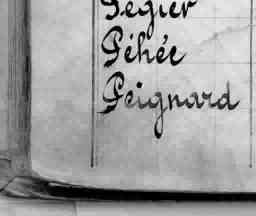 Ségier
Péhée
Peignard